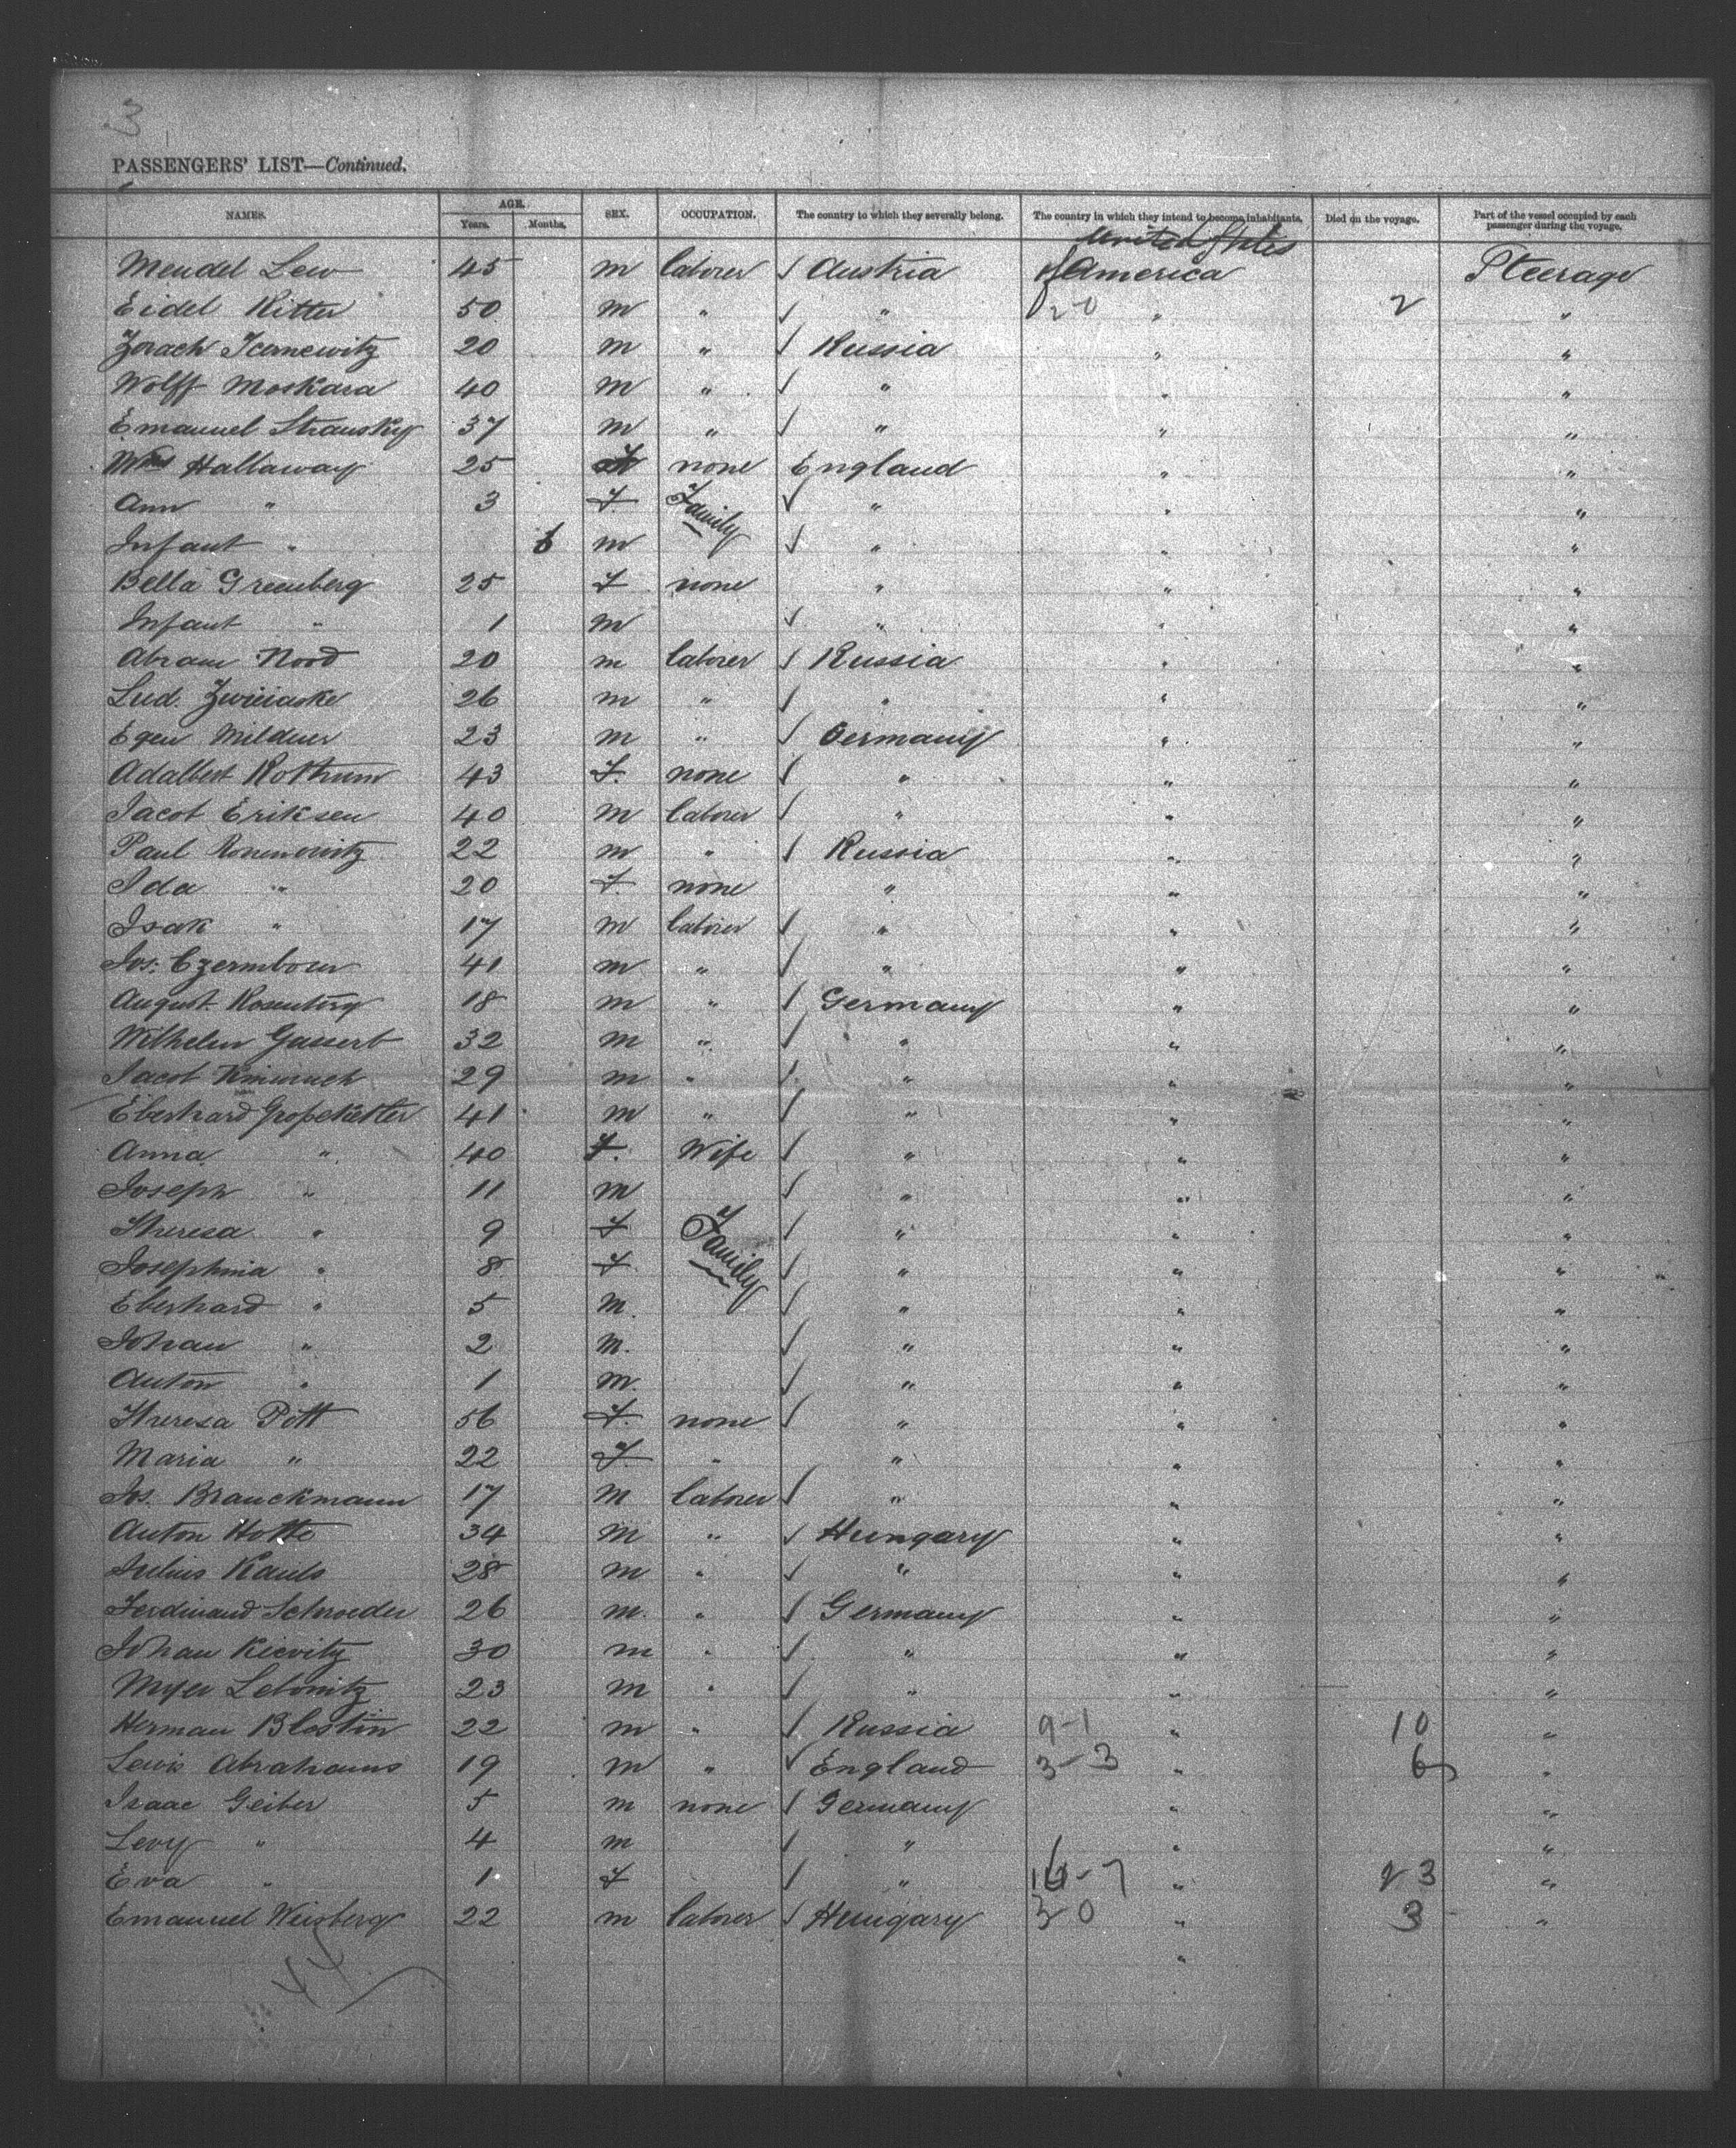 3
PASSENGERS' LIST—Continued.
NAMES. AGE. Years. Months. SEX. OCCUPATION. The country to which they severally belong. The country in which they intend to become inhabitants. Died on the voyage. Part of the vessel occupied by each passenger during the voyage.
United States
Mendel Lew 45 m laborer ✓ Austria of America Steerage
Eidel Ritter 50 m " ✓ " 20 " 2 "
Zorach 20 m " ✓ Russia " "
Wolff Moskara 40 m " ✓ " " "
Emanuel Stransky 37 m " ✓ " " "
Mrs Hallaway 25 f none England " "
Ann " 3 f Family ✓ " " "
Infant " 6 m ✓ " " "
Bella Greenberg 25 f none " " "
Infant " 1 m ✓ " " "
Abram Nood 20 m laborer ✓ Russia " "
Lud. 26 m " ✓ " " "
Egen Mildner 23 m " ✓ Germany " "
Adalbert 43 f. none ✓ " " "
Jacob Eriksen 40 m laborer ✓ " " "
Paul 22 m " ✓ Russia " "
Ida " 20 f none " " "
Isak " 17 m laborer ✓ " " "
Jos. 41 m " ✓ " " "
August. Rosenberg 18 m " ✓ Germany " "
Wilhelm Gassert 32 m " ✓ " " "
Jacob 29 m " ✓ " " "
Eberhard 41 m " ✓ " " "
Anna " 40 f. Wife ✓ " " "
Joseph " 11 m ✓ " " "
Theresa " 9 f Family ✓ " " "
Josephina " 8 f ✓ " " "
Eberhard " 5 m. ✓ " " "
Johan " 2 m. ✓ " " "
Anton " 1 m. ✓ " " "
Theresa Pott 56 f. none ✓ " " "
Maria " 22 f. " " " "
Jos. Branckmann 17 m laborer ✓ " " "
Anton Hotte 34 m " ✓ Hungary " "
Julius 28 m " ✓ " " "
Ferdinand Schroeder 26 m. " ✓ Germany " "
Johan Kievitz 30 m " ✓ " " "
Myer Lebovitz 23 m " ✓ " " "
Herman Blostin 22 m " ✓ Russia 9-1 " 10 "
Lewis Abrahams 19 m " ✓ England 3-3 " 6 "
Isaac Geiber 5 m none ✓ Germany " "
Levy " 4 m ✓ " " "
Eva " 1 f ✓ " " 23 "
Emanuel Weisberg 22 m laborer ✓ Hungary 30 " 3 "
"
44